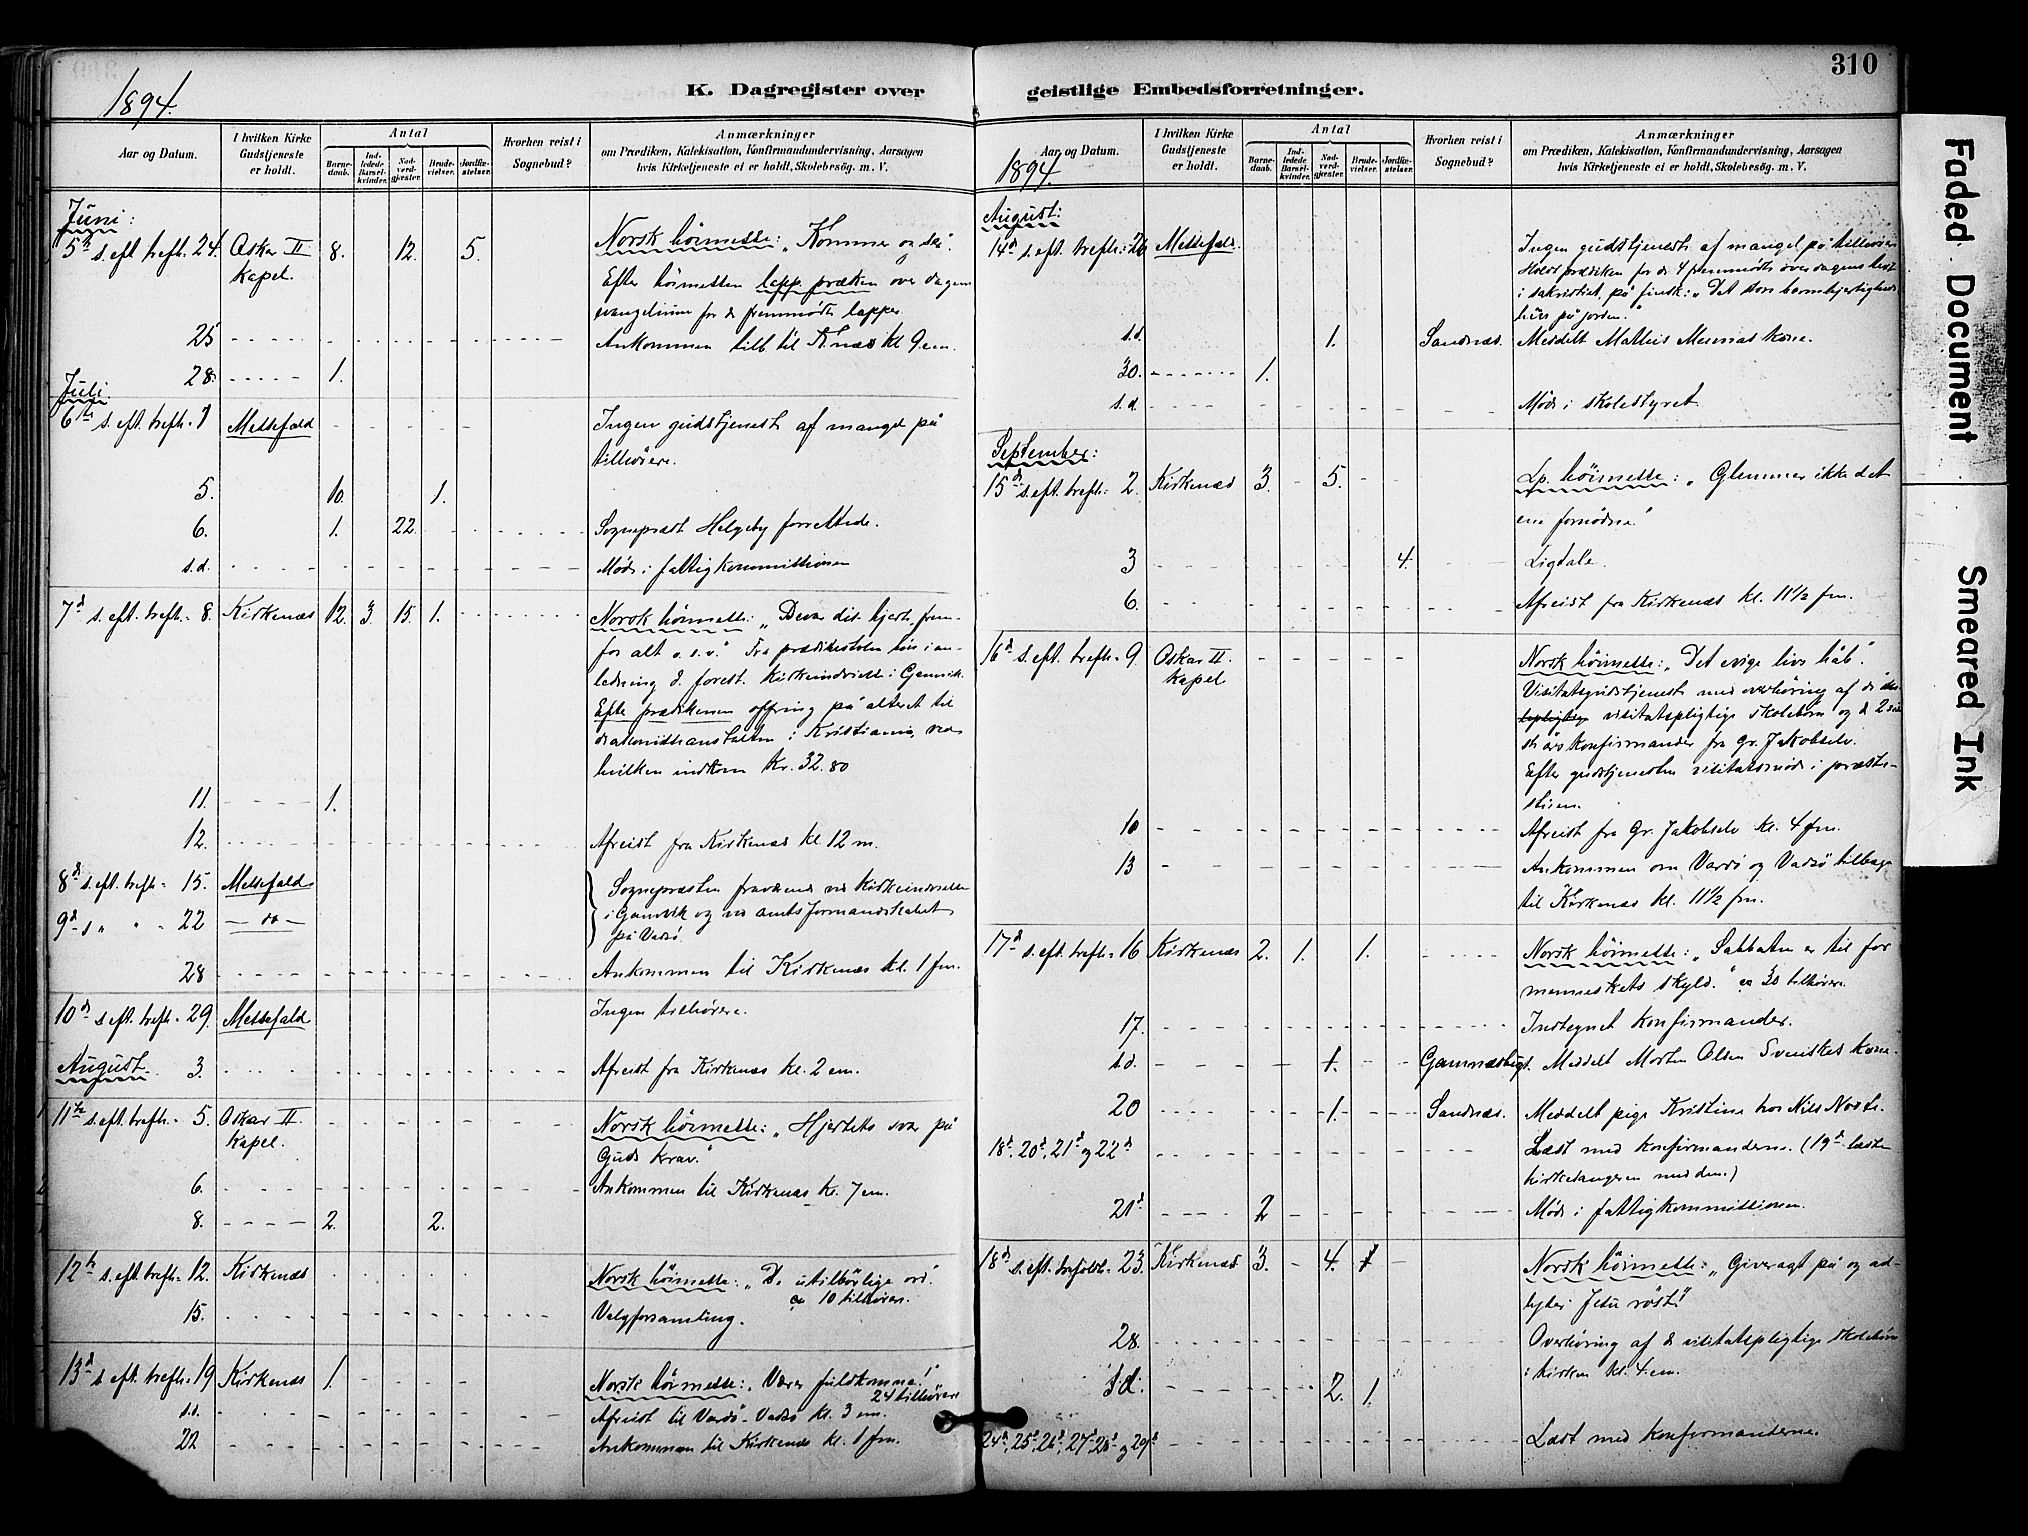 310
K. Dagregister over geistlige Embedsforretninger.
1894.
Aar og Datum.
I hvilken Kirke Gudstjeneste er holdt.
Antal
Barnedaab.
Indledede Barselkvinder.
Nadverdgjester.
Brudevielser.
Jordfæstelser.
Hvorhen reist i Sognebud?
Anmærkninger
om Prædiken, Katekisation, Konfirmandundervisning, Aarsagen
hvis Kirketjeneste ei er holdt, Skolebesøg. m. V.
Juni:
5te s. eft. trefh. 24. Oskar II 8. 12. 5. Norsk høimesse: "Kommer og ser".
kapel. Efter høimessen lapp. præken over dagens
evangelium for de fremmødte lapper
25 Ankommen til K.næs kl 9 em.
28. 1.
Juli
6te s. eft. trefh. 1 Messefald Ingen gudstjeneste af mangel på
tilhørere.
5. 10. 1.
6. 1. 22. Sogneprest Helgeby forrettede.
s.d. Møde i fattigkommissionen
7d s. eft. trefh. 8. Kirkenæs 12. 3. 15. 1. Norsk høimesse: "Bevar dit hjerte frem-
for alt o.s.v." Fra prædikestolen bøn i an-
ledning d. forest. kirkeindvielse i Gamvik.
Efter prædikenen offring på alteret til
diakonisseanstalten i Kristiania, ved
hvilken indkom Kr. 32.80
11. 1.
12. Afreist fra Kirkenæs kl 12 m.
8d s. eft. trefh. 15. Messefald Sognepræsten fraværende ved kirkeindvielsen
9d s. " " 22 — do — i Gamvik og ved amtsformandskabet
på Vadsø.
28 Ankommen til Kirkenæs kl. 1 fm.
10d s. eft. trefh. 29. Messefald Ingen tilhørere.
August 3. Afreist fra Kirkenæs kl. 2 em.
11te s. eft. trefh. 5. Oskar II Norsk høimesse: "Hjertets svar på
kapel. Guds krav."
6. Ankommen til Kirkenæs kl. 7 em.
8. 2. 2.
12te s. eft. trefh. 12. Kirkenæs Norsk høimesse: "De utilbørlige ord".
ca 10 tilhørere.
15. Valgforsamling.
13d s. eft. trefh. 19 Kirkenæs 1. Norsk høimesse: "Værer fuldkomne!"
24 tilhørere
s.d. Afreist til Vardø-Vadsø kl. 3 em.
22 Ankommen til Kirkenæs kl. 1 fm.
Aar og Datum.
1894.
I hvilken Kirke Gudstjeneste er holdt.
Antal
Barnedaab.
Indledede Barselkvinder.
Nadverdgjester.
Brudevielser.
Jordfæstelser.
Hvorhen reist i Sognebud?
Anmærkninger
om Prædiken, Katekisation, Konfirmandundervisning, Aarsagen
hvis Kirketjeneste ei er holdt, Skolebesøg. m. V.
August:
14d s. eft. trefh. 26 Messefald. Ingen gudstjeneste af mangel på tilhørere
Holdt prædiken for de 4 fremmødte over dagens text
i sakristiet, på finsk: "Det store barmhjertigheds
hus på jorden."
s.d. 1. Sandnæs. Meddelt Mathis kone.
30. 1.
s.d. Møde i skolestyret
September:
15d s. eft. trefh. 2. Kirkenæs 3. 5. Lp. høimesse: "Glemmer ikke det
ene fornødne"
3 4. Ligtale.
6. Afreist fra Kirkenæs kl. 11½ fm.
16d s. eft. trefh. 9. Oskar II. Norsk høimesse: "Det evige livs håb".
kapel Visitatsgudstjeneste med overhøring af de
visitatspligtige skolebørn og de 2
års konfirmander fra Gr. Jakobselv.
Efter gudstjenesten visitatsmøde i præste-
stuen.
10 Afreist fra Gr. Jakobselv kl. 4 fm.
13 Ankommen om Vardø og Vadsø tilbage
til Kirkenæs kl. 11½ fm.
17d s. eft. trefh. 16 Kirkenæs 2. 1. 1. Norsk høimesse: "Sabbaten er til for
menneskets skyld." ca 30 tilhørere.
17. Indtegnet konfirmander.
s.d. 1. Gamnæsbugt. Meddelt Morten Olsen Svenskes kone.
20 1. Sandnæs. Meddelt pige Kristine hos Nils
18d, 20d, 21d og 22d Læst med konfirmanderne. (19d læste
kirkesangeren med dem.)
21d 2 Møde i fattigkommissionen.
18d s. eft. trefoldh. 23. Kirkenæs 3. 4. 1 Norsk høimesse: "Giver agt på og ad-
lyder Jesu røst!"
28. Overhøring af de visitatspligtige skolebørn
i kirken kl. 4 em.
s.d. 2. 1.
24d, 25d, 26d, 27d, 28d og 29d Læst med konfirmanderne.
Faded Document
Smeared Ink